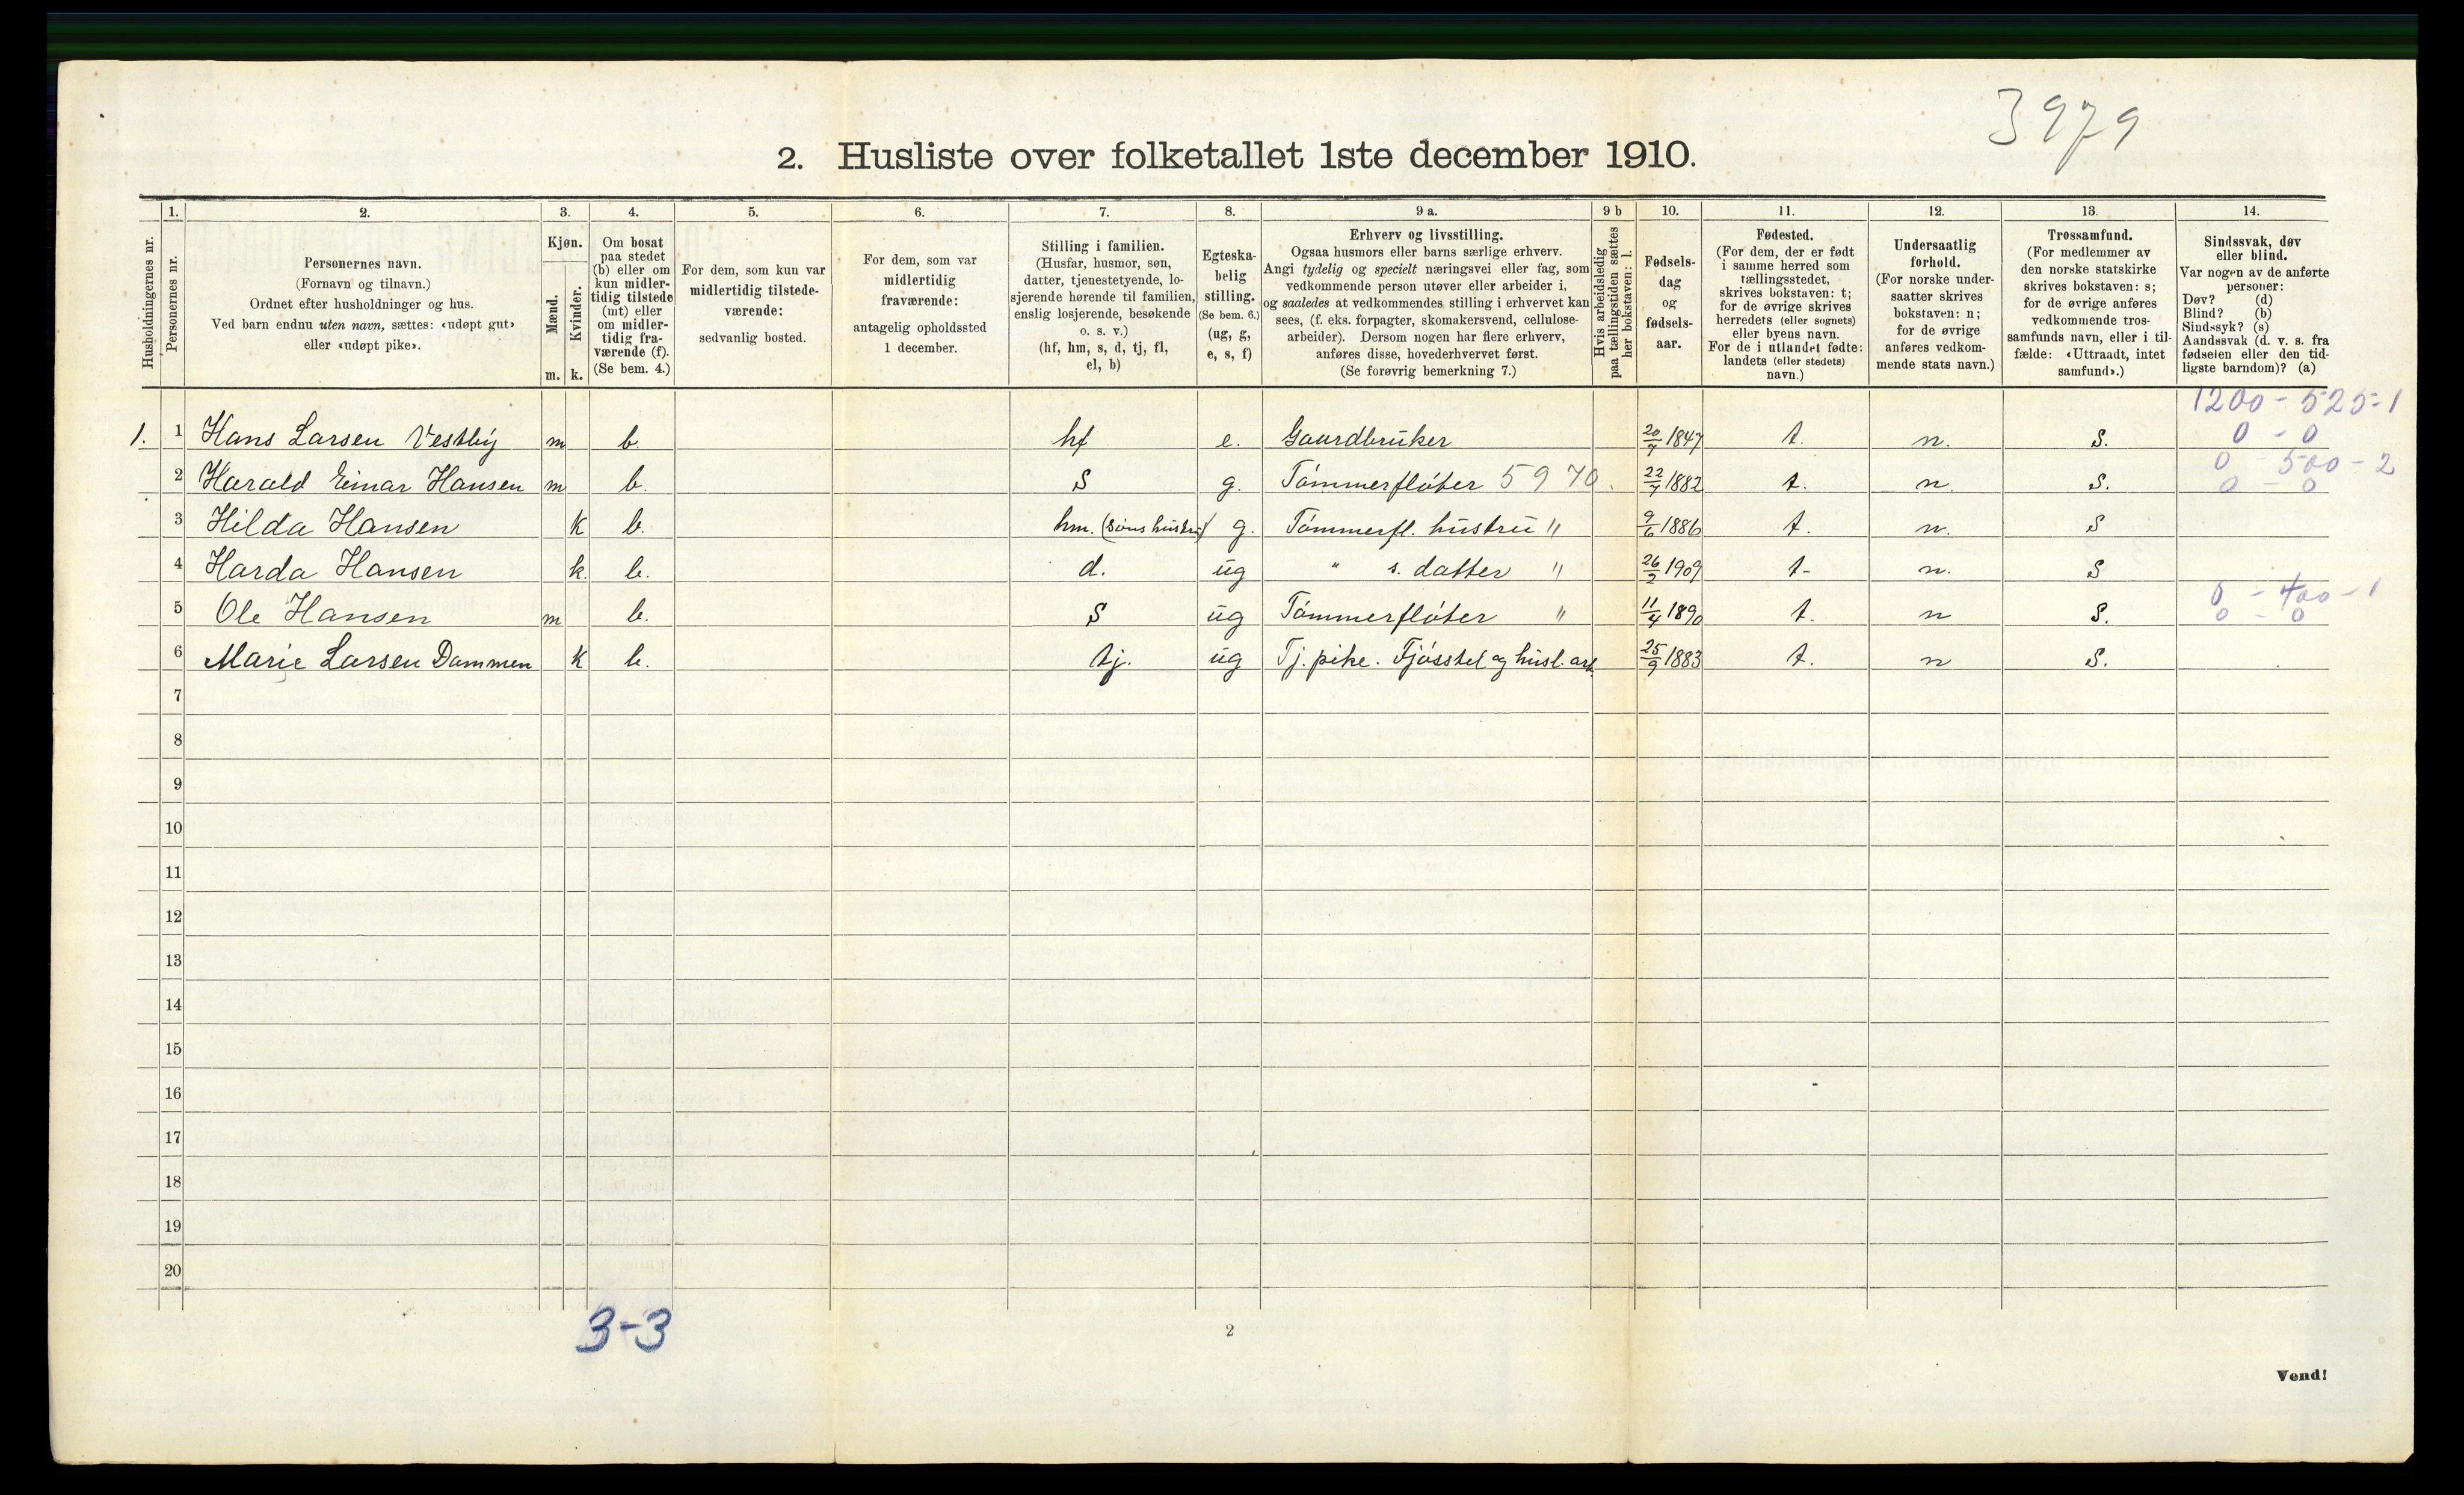 3979
2. Husliste over folketallet 1ste december 1910.
1. 2. 3. 4. 5. 6. 7. 8. 9 a. 9 b 10. 11. 12. 13. 14.
Husholdningernes nr.
Personernes nr.
Personernes navn.
(Fornavn og tilnavn.)
Ordnet efter husholdninger og hus.
Ved barn endnu uten navn, sættes: «udøpt gut»
eller «udøpt pike».
Kjøn.
Mænd.
Kvinder.
m. k.
Om bosat
paa stedet
(b) eller om
kun midler-
tidig tilstede
(mt) eller
om midler-
tidig fra-
værende (f).
(Se bem. 4.)
For dem, som kun var
midlertidig tilstede-
værende:
sedvanlig bosted.
For dem, som var
midlertidig
fraværende:
antagelig opholdssted
1 december.
Stilling i familien.
(Husfar, husmor, søn,
datter, tjenestetyende, lo-
sjerende hørende til familien,
enslig losjerende, besøkende
o. s. v.)
(hf, hm, s, d, tj, fl,
el, b)
Egteska-
belig
stilling.
(Se bem. 6.)
(ug, g,
e, s, f)
Erhverv og livsstilling.
Ogsaa husmors eller barns særlige erhverv.
Angi tydelig og specielt næringsvei eller fag, som
vedkommende person utøver eller arbeider i,
og saaledes at vedkommendes stilling i erhvervet kan
sees, (f. eks. forpagter, skomakersvend, cellulose-
arbeider). Dersom nogen har flere erhverv,
anføres disse, hovederhvervet først.
(Se forøvrig bemerkning 7.)
Hvis arbeidsledig
paa tællingstiden sættes
her bokstaven: l.
Fødsels-
dag
og
fødsels-
aar.
Fødested.
(For dem, der er født
i samme herred som
tællingsstedet,
skrives bokstaven: t;
for de øvrige skrives
herredets (eller sognets)
eller byens navn.
For de i utlandet fødte:
landets (eller stedets)
navn.)
Undersaatlig
forhold.
(For norske under-
saatter skrives
bokstaven: n;
for de øvrige
anføres vedkom-
mende stats navn.)
Trossamfund.
(For medlemmer av
den norske statskirke
skrives bokstaven: s;
for de øvrige anføres
vedkommende tros-
samfunds navn, eller i til-
fælde: «Uttraadt, intet
samfund».)
Sindssvak, døv
eller blind.
Var nogen av de anførte
personer:
Døv? (d)
Blind? (b)
Sindssyk? (s)
Aandssvak (d. v. s. fra
fødselen eller den tid-
ligste barndom)? (a)
1200 - 525 - 1
1. 1 Hans Larsen Vestby m b. hf e. Gaardbruker 20/7 1847 t. n. S. 0 - 0
0 - 500 - 2
2 Harald Einar Hansen m b. S g. Tømmerfløter 5970. 22/7 1882 t. n. S. 0 - 0
3 Hilda Hansen k b. hm. (Søns hustru) g. Tømmerfl. hustru " 9/6 1886 t. n. S
4 Harda Hansen k. b. d. ug " s. datter " 26/2 1909 t- n. S
0 - 400 - 1
5 Ole Hansen m b. S ug Tømmerfløter " 11/4 1890 t. n S. 0 - 0
6 Marie Larsen Dammen k b. tj. ug Tj. pike. Fjøsstel og husl. arb. 25/9 1883 t. n S.
7
8
9
10
11
12
13
14
15
16
17
18
19
20
3-3
2
Vend!